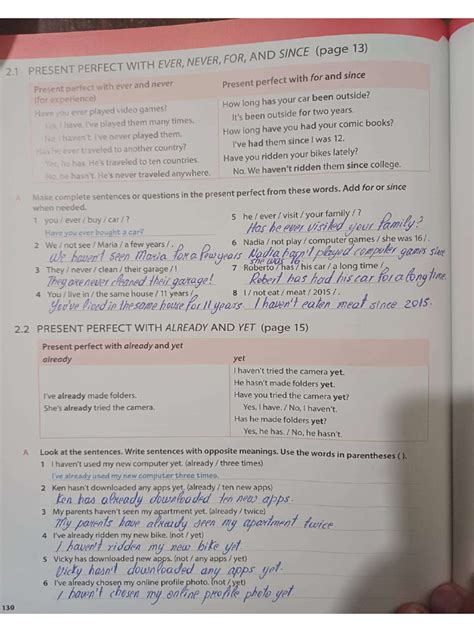 2.1 PRESENT PERFECT WITH EVER, NEVER, FOR, AND SINCE (page 13)
Present perfect with ever and never
(for experience)
Have you ever played video games?
Yes, I have. I've played them many times.
No, I haven't. I've never played them.
Has he ever traveled to another country?
Yes, he has. He's traveled to ten countries.
No, he hasn't. He's never traveled anywhere.
Present perfect with for and since
How long has your car been outside?
It's been outside for two years.
How long have you had your comic books?
I've had them since I was 12.
Have you ridden your bikes lately?
No. We haven't ridden them since college.
A Make complete sentences or questions in the present perfect from these words. Add for or since
when needed.
1 you / ever / buy / car / ?
Have you ever bought a car?
2 We / not see / Maria / a few years / .
We haven't seen Maria for a few years
3 They / never / clean / their garage / !
They are never cleaned their garage!
4 You / live in / the same house / 11 years / .
You've lived in the same house for 11 years
5 he / ever / visit / your family / ?
Has he ever visited your family?
6 Nadia / not play / computer games / she was 16 / .
Nadia hasn't played computer games since
she was 16
7 Roberto / has / his car / a long time / .
Robert has had his car for a long time.
8 I / not eat / meat / 2015 / .
I haven't eaten meat since 2015.
2.2 PRESENT PERFECT WITH ALREADY AND YET (page 15)
Present perfect with already and yet
already
I've already made folders.
She's already tried the camera.
yet
I haven't tried the camera yet.
He hasn't made folders yet.
Have you tried the camera yet?
Yes, I have. / No, I haven't.
Has he made folders yet?
Yes, he has. / No, he hasn't.
A Look at the sentences. Write sentences with opposite meanings. Use the words in parentheses ( ).
1 I haven't used my new computer yet. (already / three times)
I've already used my new computer three times.
2 Ken hasn't downloaded any apps yet. (already / ten new apps)
Ken has already downloaded ten new apps.
3 My parents haven't seen my apartment yet. (already / twice)
My parents have already seen my apartment twice
4 I've already ridden my new bike. (not / yet)
I haven't ridden my new bike yet
5 Vicky has downloaded new apps. (not / any apps / yet)
Vicky hasn't downloaded any apps yet.
6 I've already chosen my online profile photo. (not / yet)
I haven't chosen my online profile photo yet
130